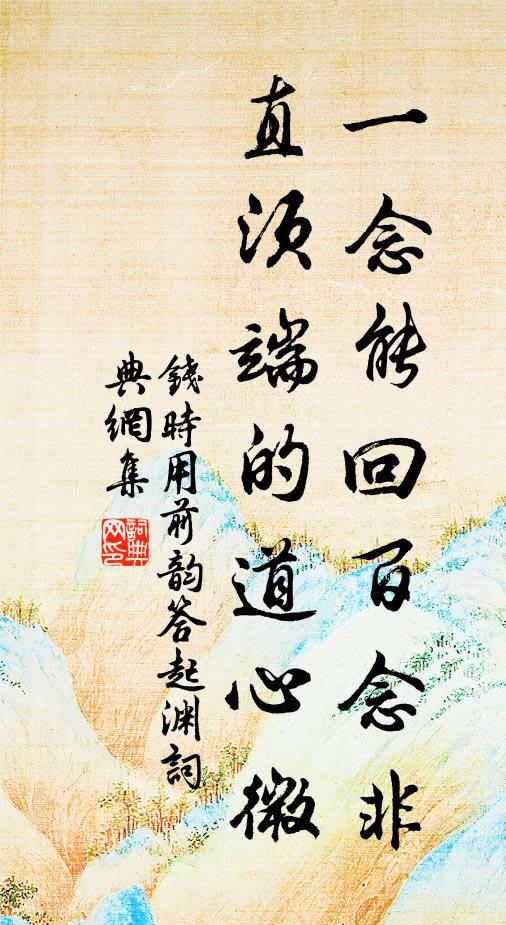 一念能回百念非
直須端的道心微
錢時用前韵答起渊詞
典網集
詞典
网印